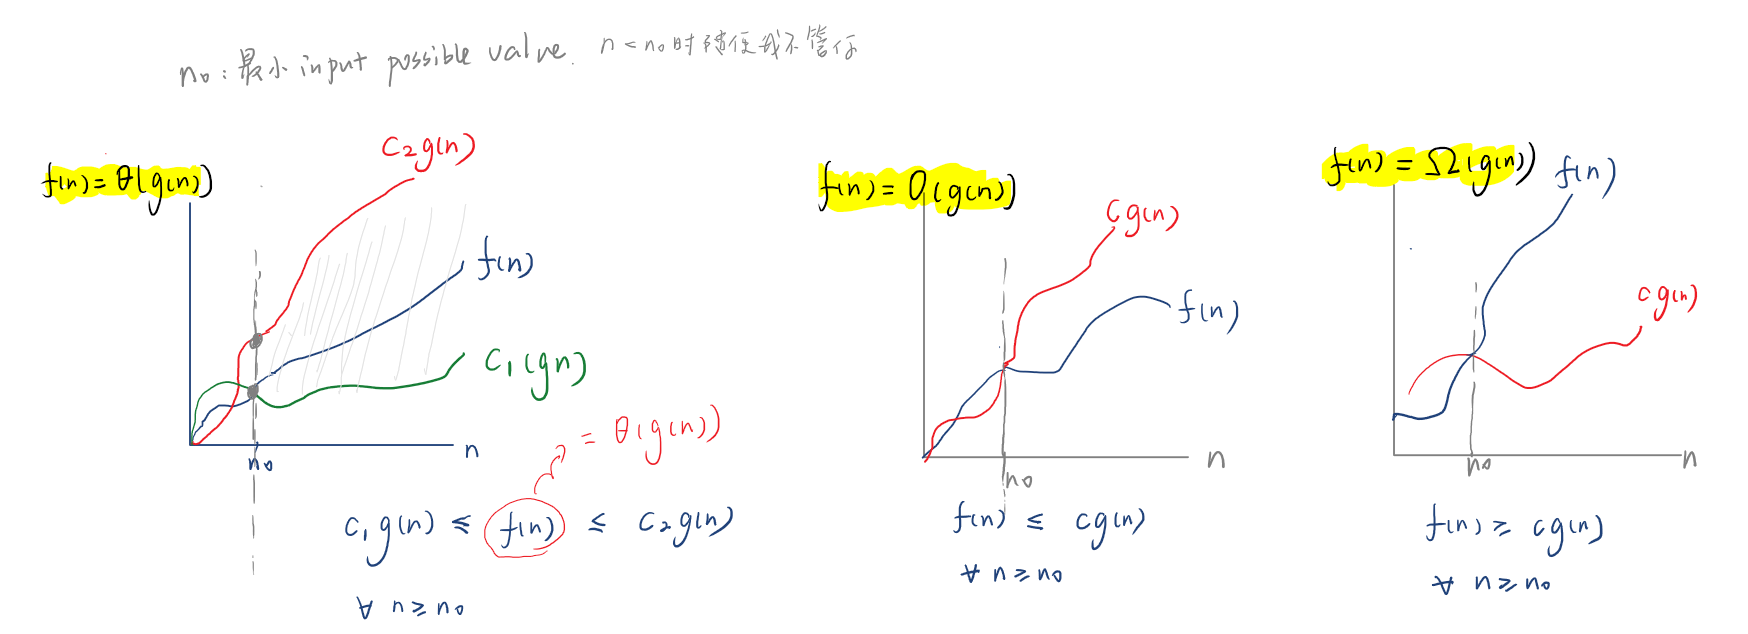 n₀：最小 input possible value. n < n₀时随便我不管你
f(n) = θ(g(n))
C₂g(n)
f(n)
C₁(gn)
n
n₀
= θ(g(n))
C₁g(n) ≤ f(n) ≤ C₂g(n)
∀ n ≥ n₀
f(n) = O(g(n))
Cg(n)
f(n)
n
n₀
f(n) ≤ cg(n)
∀ n ≥ n₀
f(n) = Ω(g(n))
f(n)
cg(n)
n
n₀
f(n) ≥ cg(n)
∀ n ≥ n₀